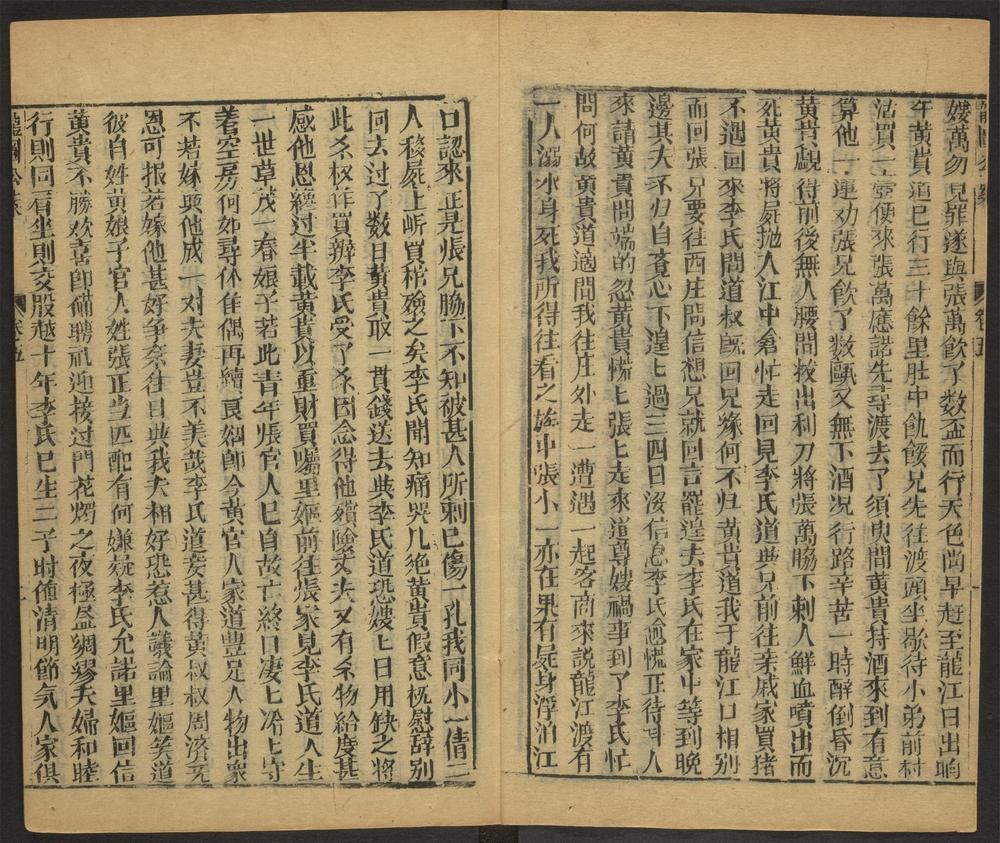 龍圖公案　卷五
嫂萬勿見罪遂與張萬飲了数盃而行天色尚早赶至龍江日出晌
午黄貴道已行三十餘里肚中飢餒兄先往渡頭坐歇待小弟前村
沽買一壺便來張萬應諾先等渡去了須臾間黄貴持酒來到有意
算他一連劝張兄飲了数甌又無下酒况行路辛苦一時醉倒昏沉
黄貴觑得前後無人腰間拔出利刀將張萬脇下刺入鮮血噴出而
死黄貴將屍抛入江中倉忙走回見李氏道與兄前往亲戚家買猪
不遇回來李氏問道叔既回兄緣何不归黄貴道我于龍江口相别
而回張兄要往西庄問信想兄就回言罷遑去李氏在家中等到晚
邊其夫不归自覚心下遑〻過三四日沒信息李氏愈慌正待叫人
來請黄貴問端的忽黄貴慌〻張〻走來道尊嫂禍事到了李氏忙
問何故黄貴道適間我往庄外走一遭遇一起客商來説龍江渡有
一人溺水身死我所得往看之族中張小一亦在果有屍身浮泊江
口認來正是張兄脇下不知被甚人所刺已傷一孔我同小一倩二
人移屍上岸買棺殮之矣李氏聞知痛哭几绝黄貴假意抚慰辞别
回去过了数日黄貴取一貫錢送去與李氏道恐嫂〻日用缺乏將
此錢权作買辦李氏受了錢因念得他殯殮丈夫又有錢物給度甚
感他恩纔过半載黄貴以重財買囑里嫗前往張家見李氏道人生
一世草茂一春娘子若此青年張官人巳自故亡終日凄〻冷〻守
着空房何如尋佳偶再續良姻即今黄官人家道豊足人物出衆
不若嫁與他成一对夫妻豈不美哉李氏道妾甚得黄叔叔周濟无
恩可报若嫁他甚好争奈往日與我夫相好恐惹人議論里嫗笑道
彼自姓黄娘子官人姓張正当匹配有何嫌疑李氏允諾里嫗回信
黄貴不勝欢喜即備聘礼迎接过門花燭之夜極盡綢繆夫婦和睦
行則同肩坐則交股越十年李氏巳生二子时値清明節気人家俱
龍圖公案　卷五